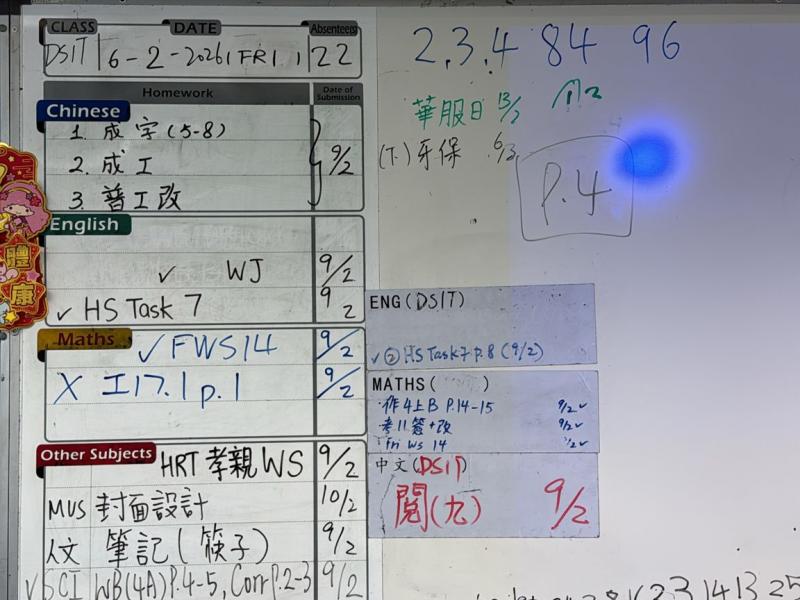 CLASS DATE Absentees
DSIT 6-2-2026 (FRI.) 22
Homework Date of Submission
Chinese
1. 成字(5-8)
2. 成工
3. 普工改
9/2
English
✓ WJ 9/2
✓ HS Task 7 9/2
Maths
✓ FWS14 9/2
X 工17.1 p.1 9/2
Other Subjects
HRT 孝親WS 9/2
MUS 封面設計 10/2
人文 筆記(筷子) 9/2
✓ SCI WB(4A)P.4-5, Corr P.2-3 9/2
2.3.4 84 96
華服日 13/2
(下.) 牙保 6/3
P.4
ENG(DSIT)
✓ ② HS Task7 p.8 (9/2)
MATHS( )
作4上B P.14-15 9/2 ✓
考11簽+改 9/2 ✓
Fri WS 14 9/2 ✓
中文(DSIT)
閱(九) 9/2
體
康